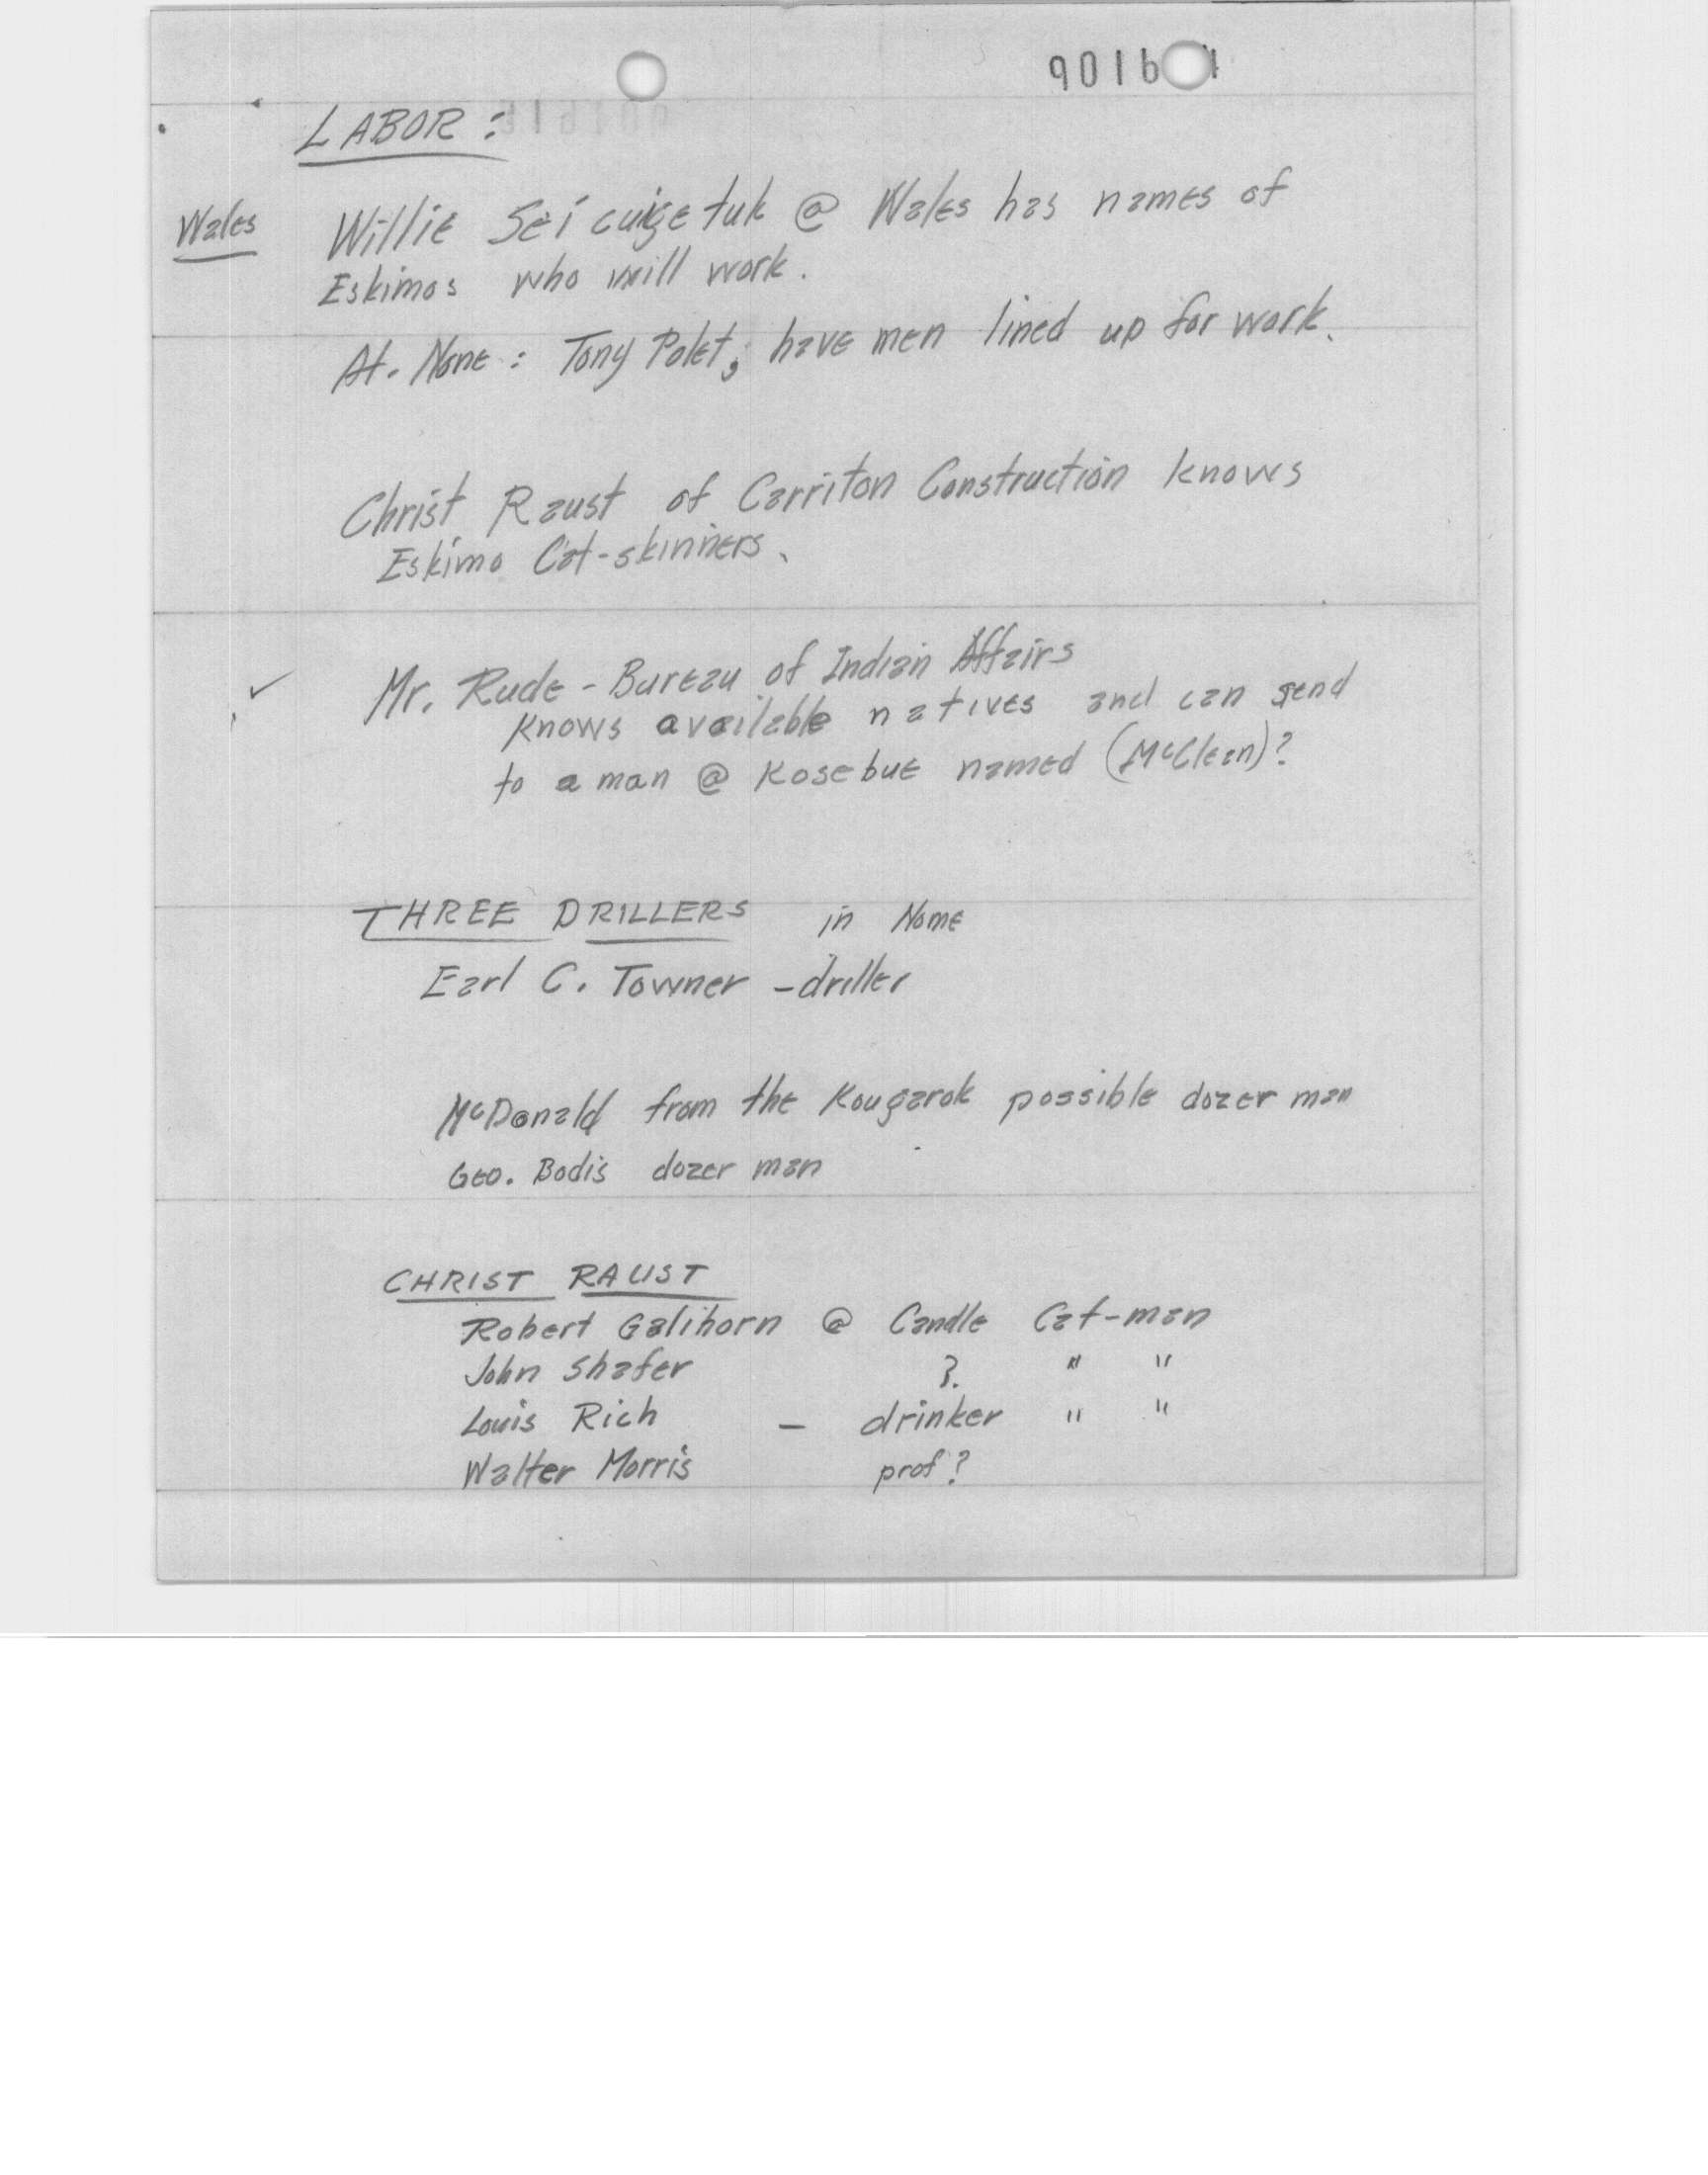 LABOR :
Wales Willie Seicuigetuk @ Wales has names of
Eskimos who will work.
At. Nome : Tony Polet, have men lined up for work.
Christ Raust of Carriton Construction knows
Eskimo Cat-skinners.
✓ Mr. Rude - Bureau of Indian Affairs
knows available natives and can send
to a man @ Kosebue named (McClean)?
THREE DRILLERS in Nome
Earl C. Towner - driller
McDonald from the Kougarok possible dozer man
Geo. Bodis dozer man
CHRIST RAUST
Robert Galihorn @ Candle Cat-man
John Shafer ?. " "
Louis Rich - drinker " "
Walter Morris prof?